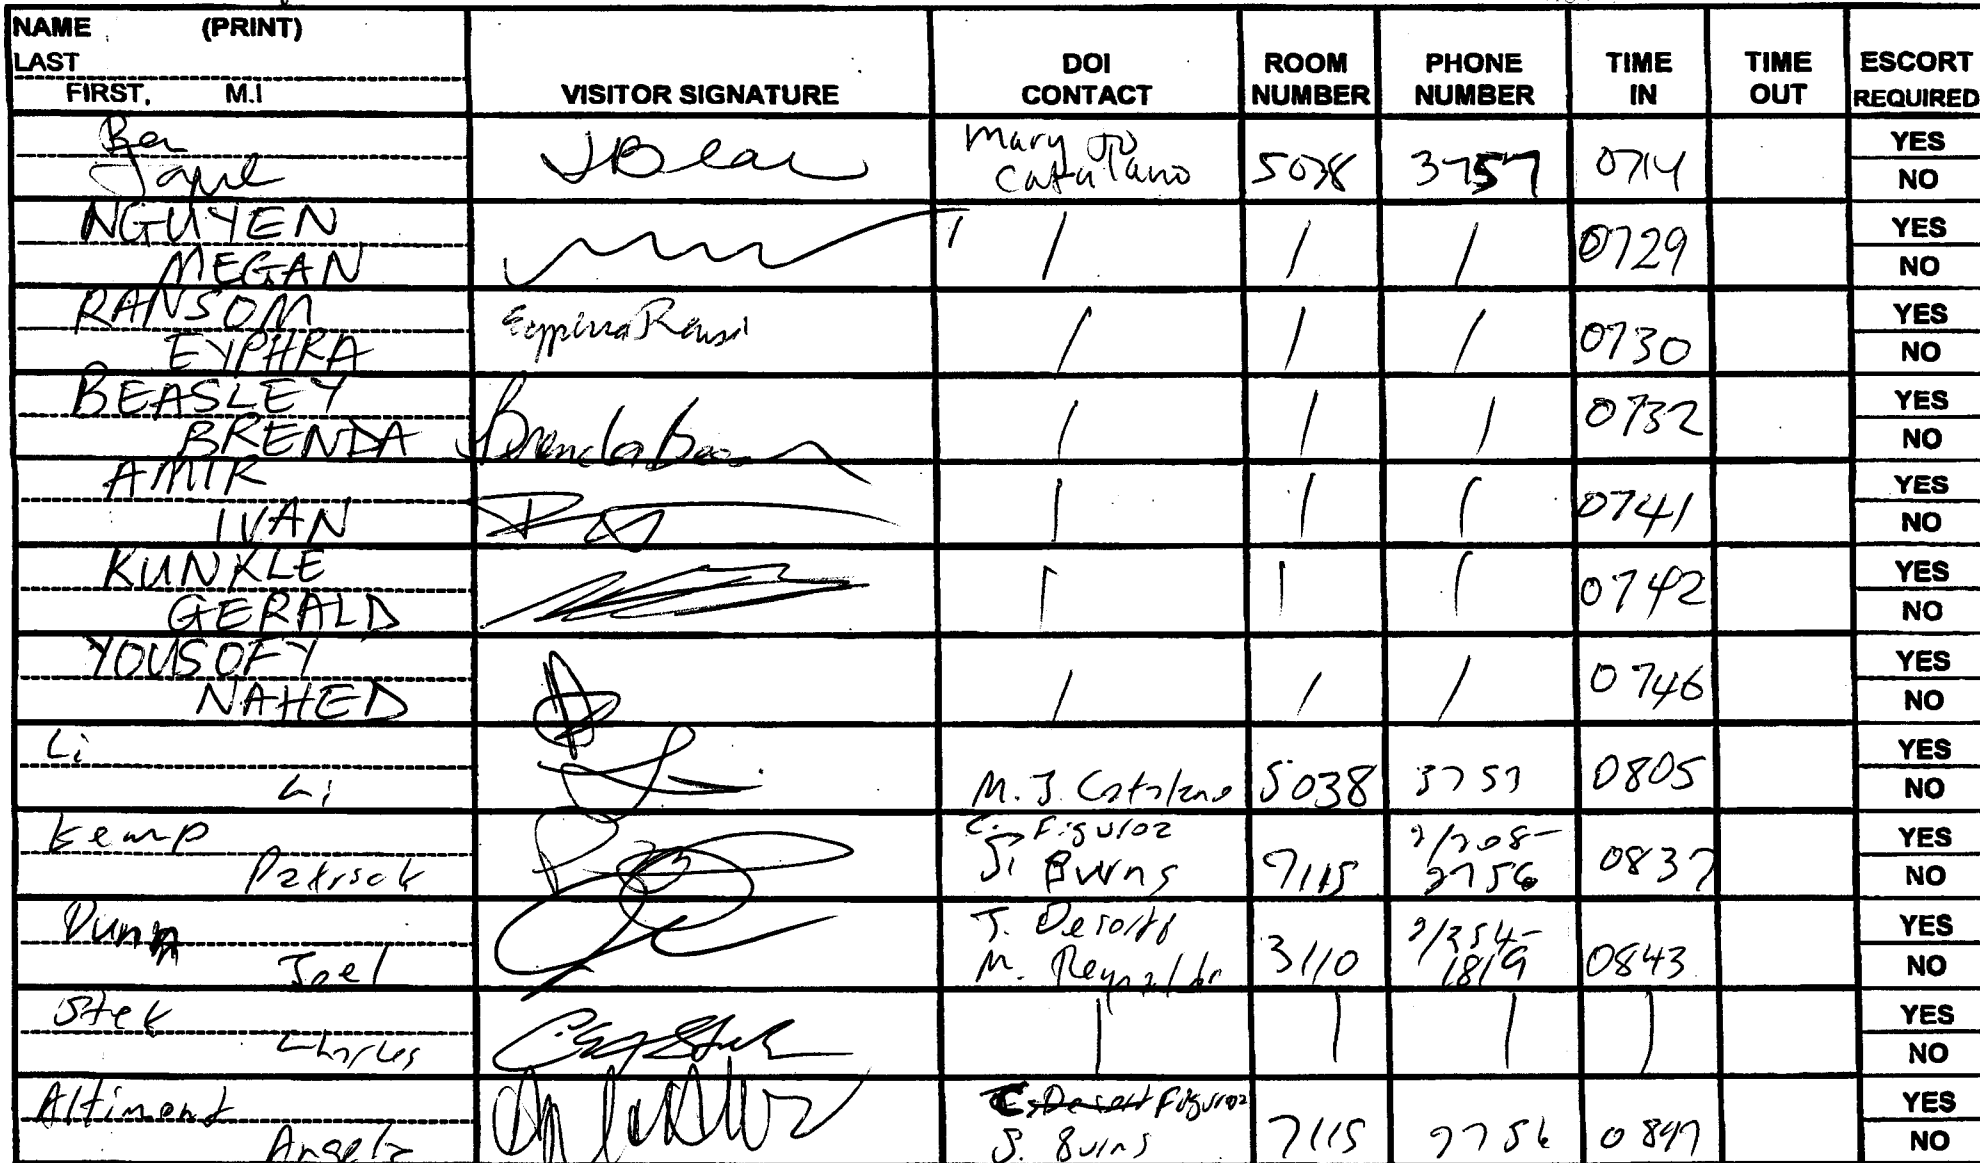 NAME (PRINT)
LAST
FIRST, M.I
VISITOR SIGNATURE
DOI CONTACT
ROOM NUMBER
PHONE NUMBER
TIME IN
TIME OUT
ESCORT REQUIRED
Mary Jo
Catalano
5038 3757 0714
YES
NO
NGUYEN
MEGAN
/ / / 0729
YES
NO
RANSOM
EYPHRA
/ / / 0730
YES
NO
BEASLEY
BRENDA
/ / / 0732
YES
NO
AMIR
IVAN
/ / / 0741
YES
NO
KUNKLE
GERALD
/ / / 0742
YES
NO
YOUSOFY
NAHED
/ / / 0746
YES
NO
Li
Li
M. J. Catalano 5038 3757 0805
YES
NO
Kemp
Patrick
C. Figuroa
S. Burns
7115
0837
YES
NO
Dunn
Joel
M. Reynolds
3110
1819
0843
YES
NO
Stek
Charles
/ / / /
YES
NO
Altiment
Angela
Figuroa
S. Burns
7115
YES
NO